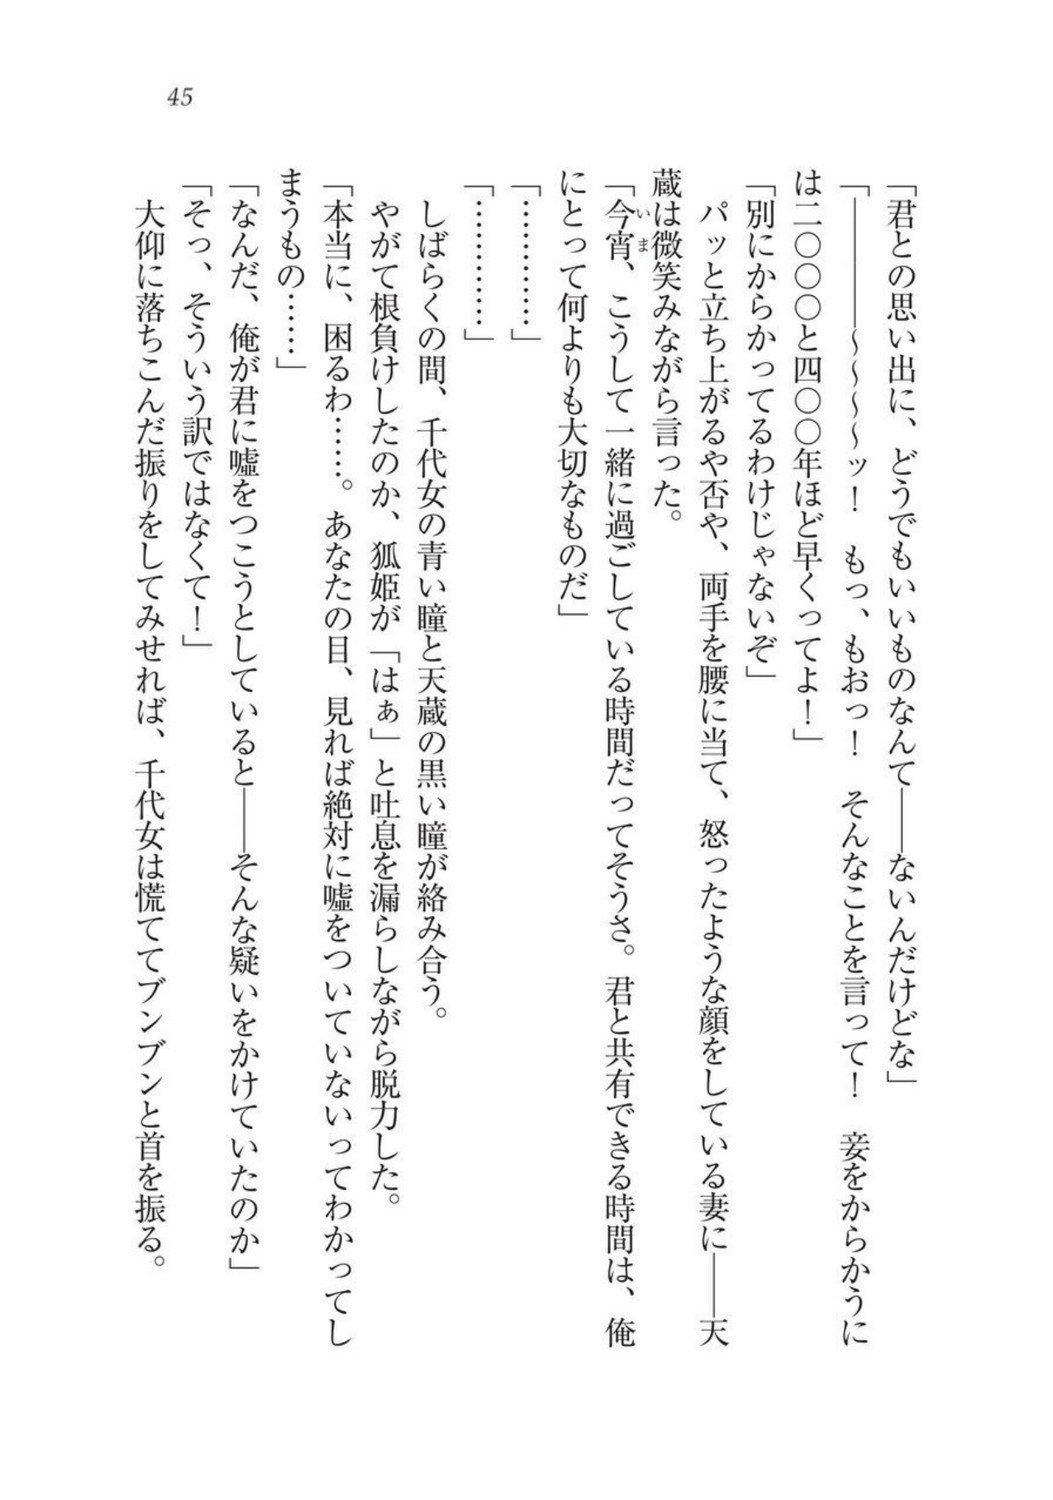 45
「君との思い出に、どうでもいいものなんて――ないんだけどな」
「――――～～～～ッ！　もっ、もおっ！　そんなことを言って！　妾をからかうに
は二〇〇〇と四〇〇年ほど早くってよ！」
「別にからかってるわけじゃないぞ」
　パッと立ち上がるや否や、両手を腰に当て、怒ったような顔をしている妻に――天
蔵は微笑みながら言った。
「今宵、こうして一緒に過ごしている時間だってそうさ。君と共有できる時間は、俺
にとって何よりも大切なものだ」
「…………」
「…………」
　しばらくの間、千代女の青い瞳と天蔵の黒い瞳が絡み合う。
　やがて根負けしたのか、狐姫が「はぁ」と吐息を漏らしながら脱力した。
「本当に、困るわ……。あなたの目、見れば絶対に嘘をついていないってわかってし
まうもの……」
「なんだ、俺が君に嘘をつこうとしていると――そんな疑いをかけていたのか」
「そっ、そういう訳ではなくて！」
　大仰に落ちこんだ振りをしてみせれば、千代女は慌ててブンブンと首を振る。